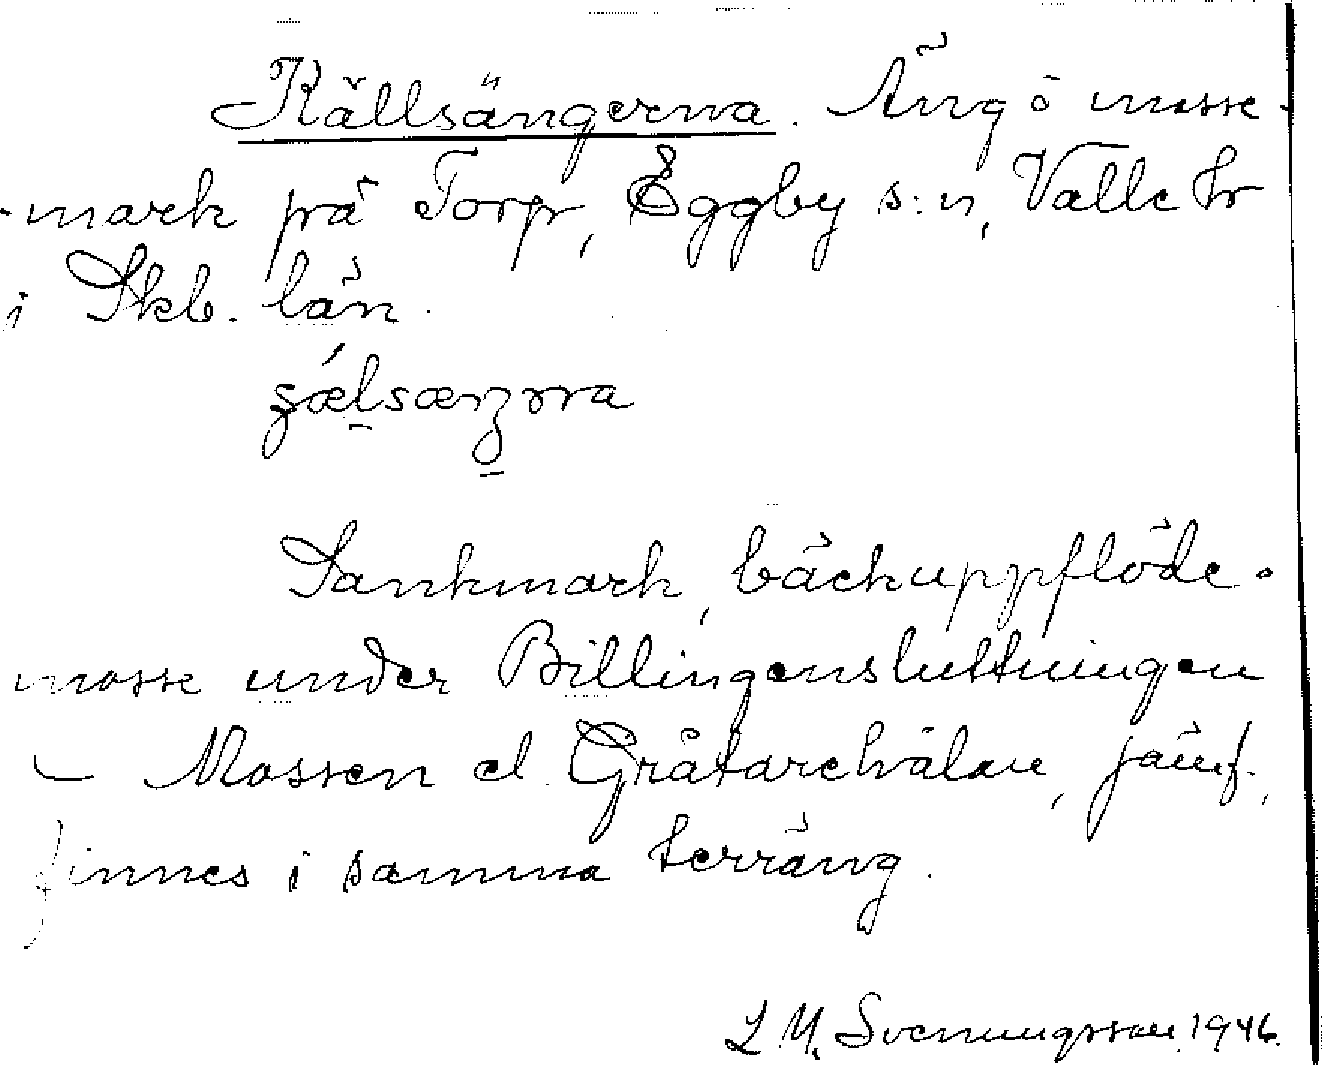 Källsängerna. Äng ö mosse-
-mark på Torp, Eggby s:n, Valle hr
i Skb. län.
Sankmark, bäckuppflöde-
mosse under Billingensluttningen
– Mossen el. Gråtarekälan, jämf.,
finnes i samma terräng.
L. M. Svenungsson 1946.